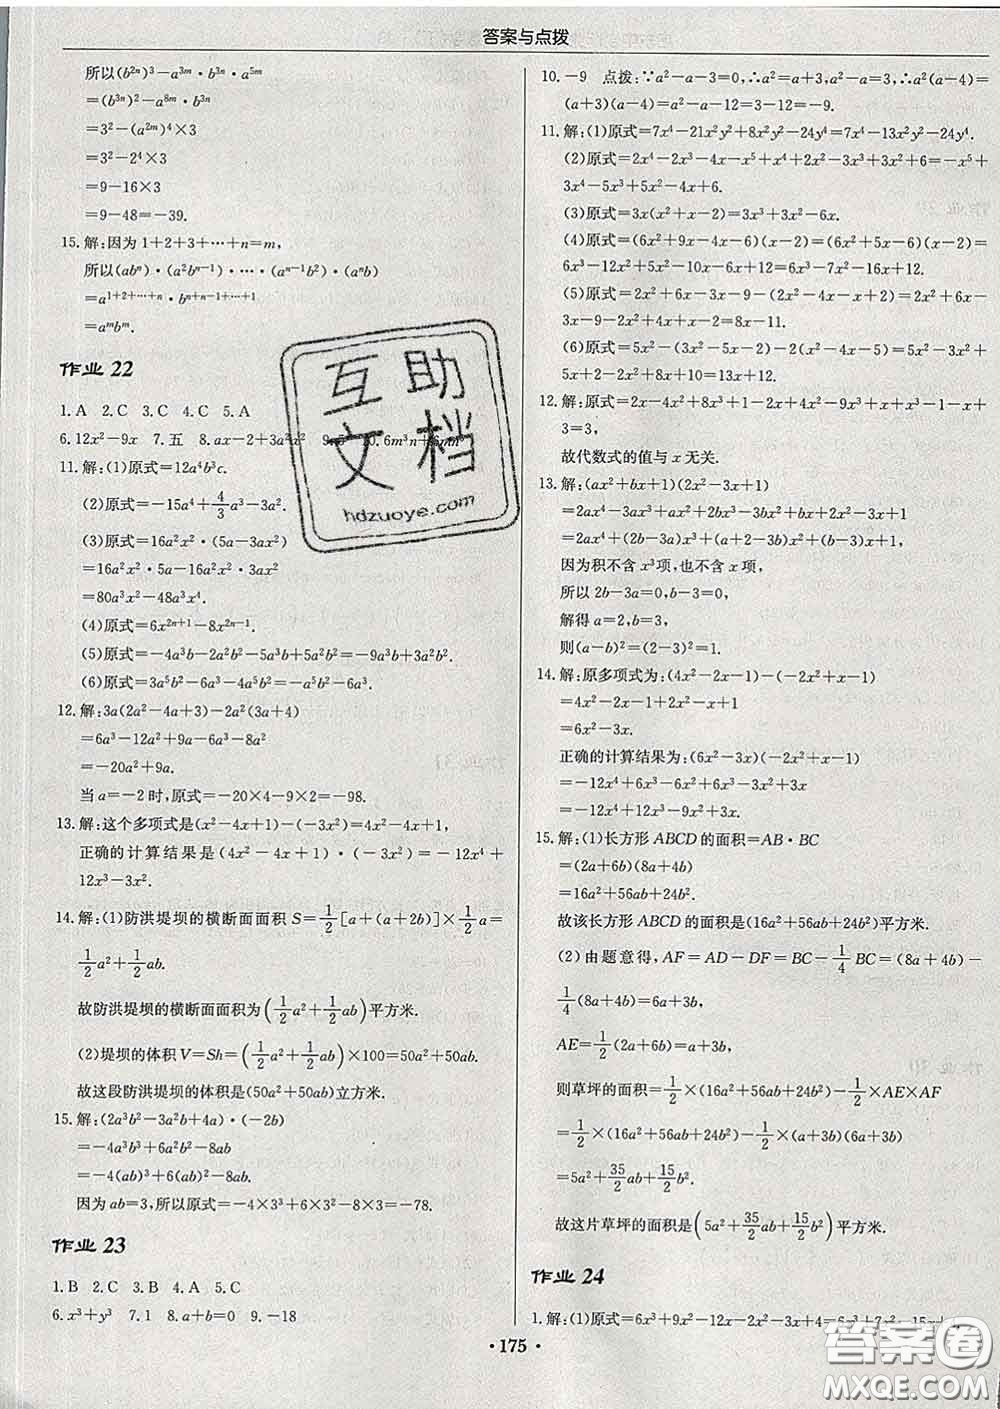 答案与点拨
所以(b²ⁿ)³－a³ᵐ·b³ⁿ·a⁵ᵐ
＝(b³ⁿ)²－a⁸ᵐ·b³ⁿ
＝3²－(a²ᵐ)⁴×3
＝3²－2⁴×3
＝9－16×3
＝9－48＝－39.
15.解:因为1＋2＋3＋…＋n＝m,
所以(abⁿ)·(a²bⁿ⁻¹)·…·(aⁿ⁻¹b²)·(aⁿb)
＝a¹⁺²⁺…⁺ⁿ·bⁿ⁺ⁿ⁻¹⁺…⁺¹
＝aᵐbᵐ.
作业 22
1.A 2.C 3.C 4.C 5.A
6.12x²－9x 7.五 8.ax－2＋3a²x²
11.解:(1)原式＝12a⁴b³c.
(2)原式＝－15a⁴＋4/3a³－3a².
(3)原式＝16a²x²·(5a－3ax²)
＝16a²x²·5a－16a²x²·3ax²
＝80a³x²－48a³x⁴.
(4)原式＝6x²ⁿ⁺¹－8x²ⁿ⁻¹.
(5)原式＝－4a³b－2a²b²－5a³b＋5a²b²＝－9a³b＋3a²b².
(6)原式＝3a⁵b²－6a³－4a⁵b²＝－a⁵b²－6a³.
12.解:3a(2a²－4a＋3)－2a²(3a＋4)
＝6a³－12a²＋9a－6a³－8a²
＝－20a²＋9a.
当a＝－2时,原式＝－20×4－9×2＝－98.
13.解:这个多项式是(x²－4x＋1)－(－3x²)＝4x²－4x＋1,
正确的计算结果是(4x²－4x＋1)·(－3x²)＝－12x⁴＋
12x³－3x².
14.解:(1)防洪堤坝的横断面面积S＝1/2[a＋(a＋2b)]×1/2a＝
1/2a²＋1/2ab.
故防洪堤坝的横断面面积为(1/2a²＋1/2ab)平方米.
(2)堤坝的体积V＝Sh＝(1/2a²＋1/2ab)×100＝50a²＋50ab.
故这段防洪堤坝的体积是(50a²＋50ab)立方米.
15.解:(2a³b²－3a²b＋4a)·(－2b)
＝－4a³b³＋6a²b²－8ab
＝－4(ab)³＋6(ab)²－8ab.
因为ab＝3,所以原式＝－4×3³＋6×3²－8×3＝－78.
作业 23
1.B 2.C 3.B 4.A 5.C
6.x³＋y³ 7.1 8.a＋b＝0 9.－18
10.－9 点拨:∵a²－a－3＝0,∴a²＝a＋3,a²－a＝3,∴a²(a－4)＝
(a＋3)(a－4)＝a²－a－12＝3－12＝－9.
11.解:(1)原式＝7x⁴－21x²y²＋8x²y²－24y⁴＝7x⁴－13x²y²－24y⁴.
(2)原式＝2x⁴－2x³－4x－x⁵＋x⁴＋2x²－3x³＋3x²＋6＝－x⁵＋
3x⁴－5x³＋5x²－4x＋6.
(3)原式＝3x(x²＋2x－x－2)＝3x³＋3x²－6x.
(4)原式＝(6x²＋9x－4x－6)(x－2)＝(6x²＋5x－6)(x－2)＝
6x³－12x²＋5x²－10x－6x＋12＝6x³－7x²－16x＋12.
(5)原式＝2x²＋6x－x－3－2(x²－4x＋x＋2)＝2x²＋6x－
3x－2x²＋8x－2x－4＝8x－11.
(6)原式＝5x³－2x²－(3x³－5x－2)－2(x²－4x－x)＝5x³－3x²＋
5x＋2－2x²＋8x＋10＝13x＋12.
12.解:原式＝2x－4x²＋8x³＋1－2x＋4x²－9x³＋x³＋x－1－x＋
3＝3,
故代数式的值与x无关.
13.解:(ax²＋bx＋1)(2x²－3x＋1)
＝2ax⁴－3ax³＋ax²＋2bx³－3bx²＋bx＋2x²－3x＋1
＝2ax⁴＋(2b－3a)x³＋(a＋2－3b)x²＋(b－3)x＋1,
因为积不含x³项,也不含x项,
所以2b－3a＝0,b－3＝0,
解得a＝2,b＝3,
则(a－b)²＝(2－3)²＝1.
14.解:原多项式为:(4x²－2x－1)－(－2x²－2x－1)
＝4x²－2x－1＋2x²＋2x＋1
＝6x²－3x.
正确的计算结果为:(6x²－3x)(－2x²＋x－1)
＝－12x⁴＋6x³－6x²＋6x³－3x²＋3x
＝－12x⁴＋12x³－9x²＋3x.
15.解:(1)长方形ABCD的面积＝AB·BC
＝(2a＋6b)(8a＋4b)
＝16a²＋56ab＋24b².
故该长方形ABCD的面积是(16a²＋56ab＋24b²)平方米.
(2)由题意得,AF＝AD－DF＝BC－1/4BC＝(8a＋4b)－
1/4(8a＋4b)＝6a＋3b,
AE＝1/2(2a＋6b)＝a＋3b,
则草坪的面积＝1/2×(16a²＋56ab＋24b²)－1/2×AE×AF
＝1/2×(16a²＋56ab＋24b²)－1/2×(a＋3b)(6a＋3b)
＝5a²＋35/2ab＋15/2b².
故这片草坪的面积是(5a²＋35/2ab＋15/2b²)平方米.
作业 24
1.解:(1)原式＝6x³＋9x²－12x－2x²－3x＋4＝6x³＋7x²－15x＋
·175·
互助文档
hdzuoye.com
答案圈
MXQE.COM